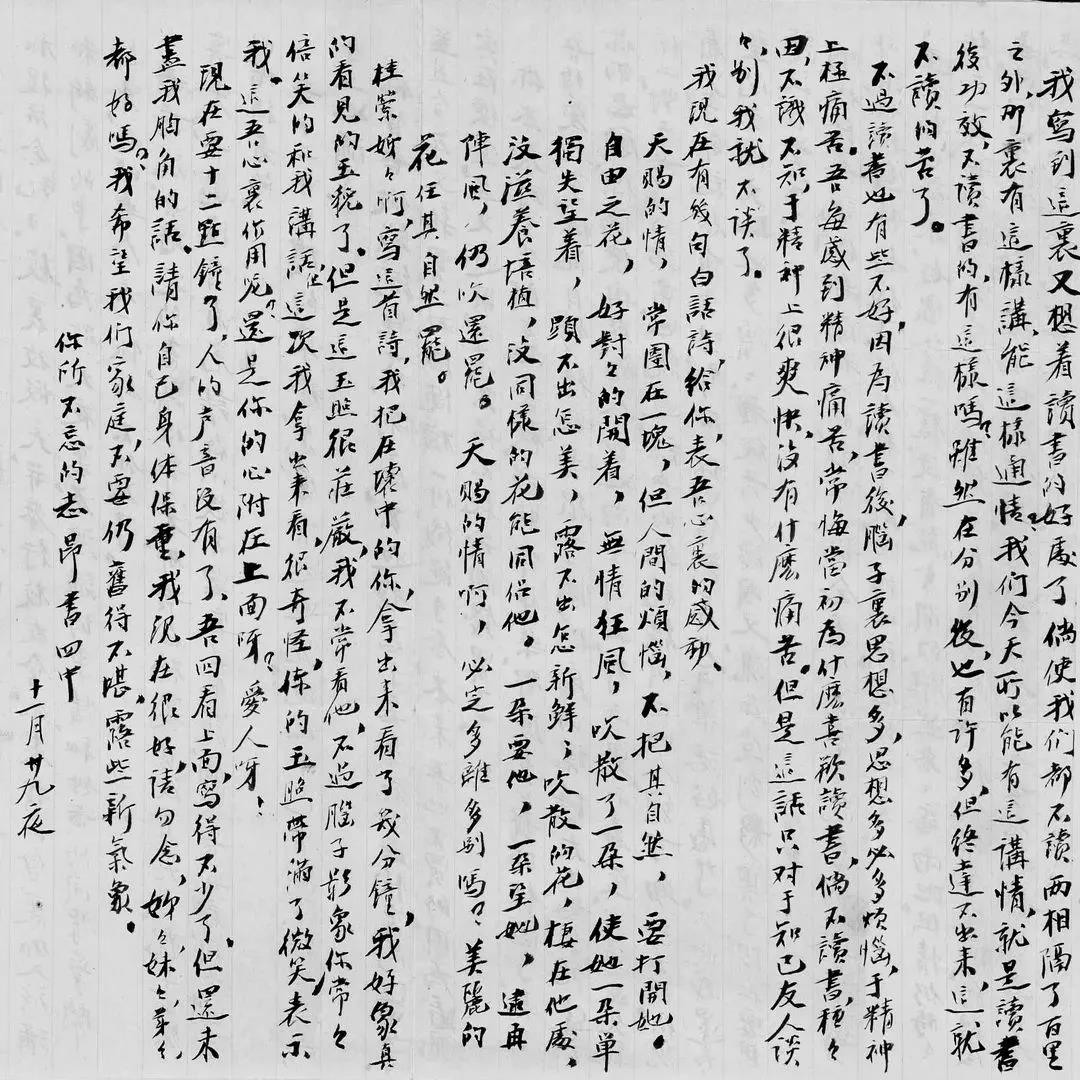 我寫到這裏又想着讀書的好處了倘使我们都不讀两相隔了百里
之外,那裏有這樣講,能這樣通情?我们今天所以能有這講情,就是讀書
後功效,不讀書的,有這樣嗎?雖然在分别後,也有许多,但终達不出来,這就
不讀的苦了。
不过讀書也有些不好,因為讀書後,腦子裏思想多,思想多必多烦惱,于精神
上極痛苦。吾每感到精神痛苦,常悔當初為什麽喜歡讀書,倘不讀書,種々
田,不識不知,于精神上很爽快,没有什麽痛苦。但是這話只对于知己友人談
々,别我就不谈了。
我現在有幾句白話詩,給你,表吾心裏的感動、
天賜的情,常團在一塊,但人間的煩惱,不把其自然,要打開她。
自由之花,好對々的開着,無情狂風,吹散了一朶,使她一朶單
獨失望着,顕不出怎美,露不出怎新鮮;吹散的花,棲在他處,
没滋養培植,没同樣的花能同侣他。一朶要他,一朶望她,遠再
陣風,仍吹還罷。天賜的情啊,必定多離多别嗎?美麗的
花任其自然罷。
桂荣姊々啊,寫這首詩,我把在懷中的你,拿出来看了幾分鐘,我好象真
的看見的玉貌了。但是這玉照很莊嚴,我不常看他,不過腦子影象你常々
倍笑的和我講話,但這次我拿出来看,很奇怪,你的玉照带滿了微笑,表示
我。這吾心裏作用呢?還是你的心附在上面呀?愛人呀!
現在要十二點鐘了,人的声音没有了,吾回看上面,寫得不少了,但還未
盡我胸角的話。請你自已身体保重,我現在很好,請勿念,姊々妹々弟々
都好嗎?我希望我们家庭,不要仍舊得不堪,露些新氣象。
你所不忘的志昂書四中
十一月廿九夜